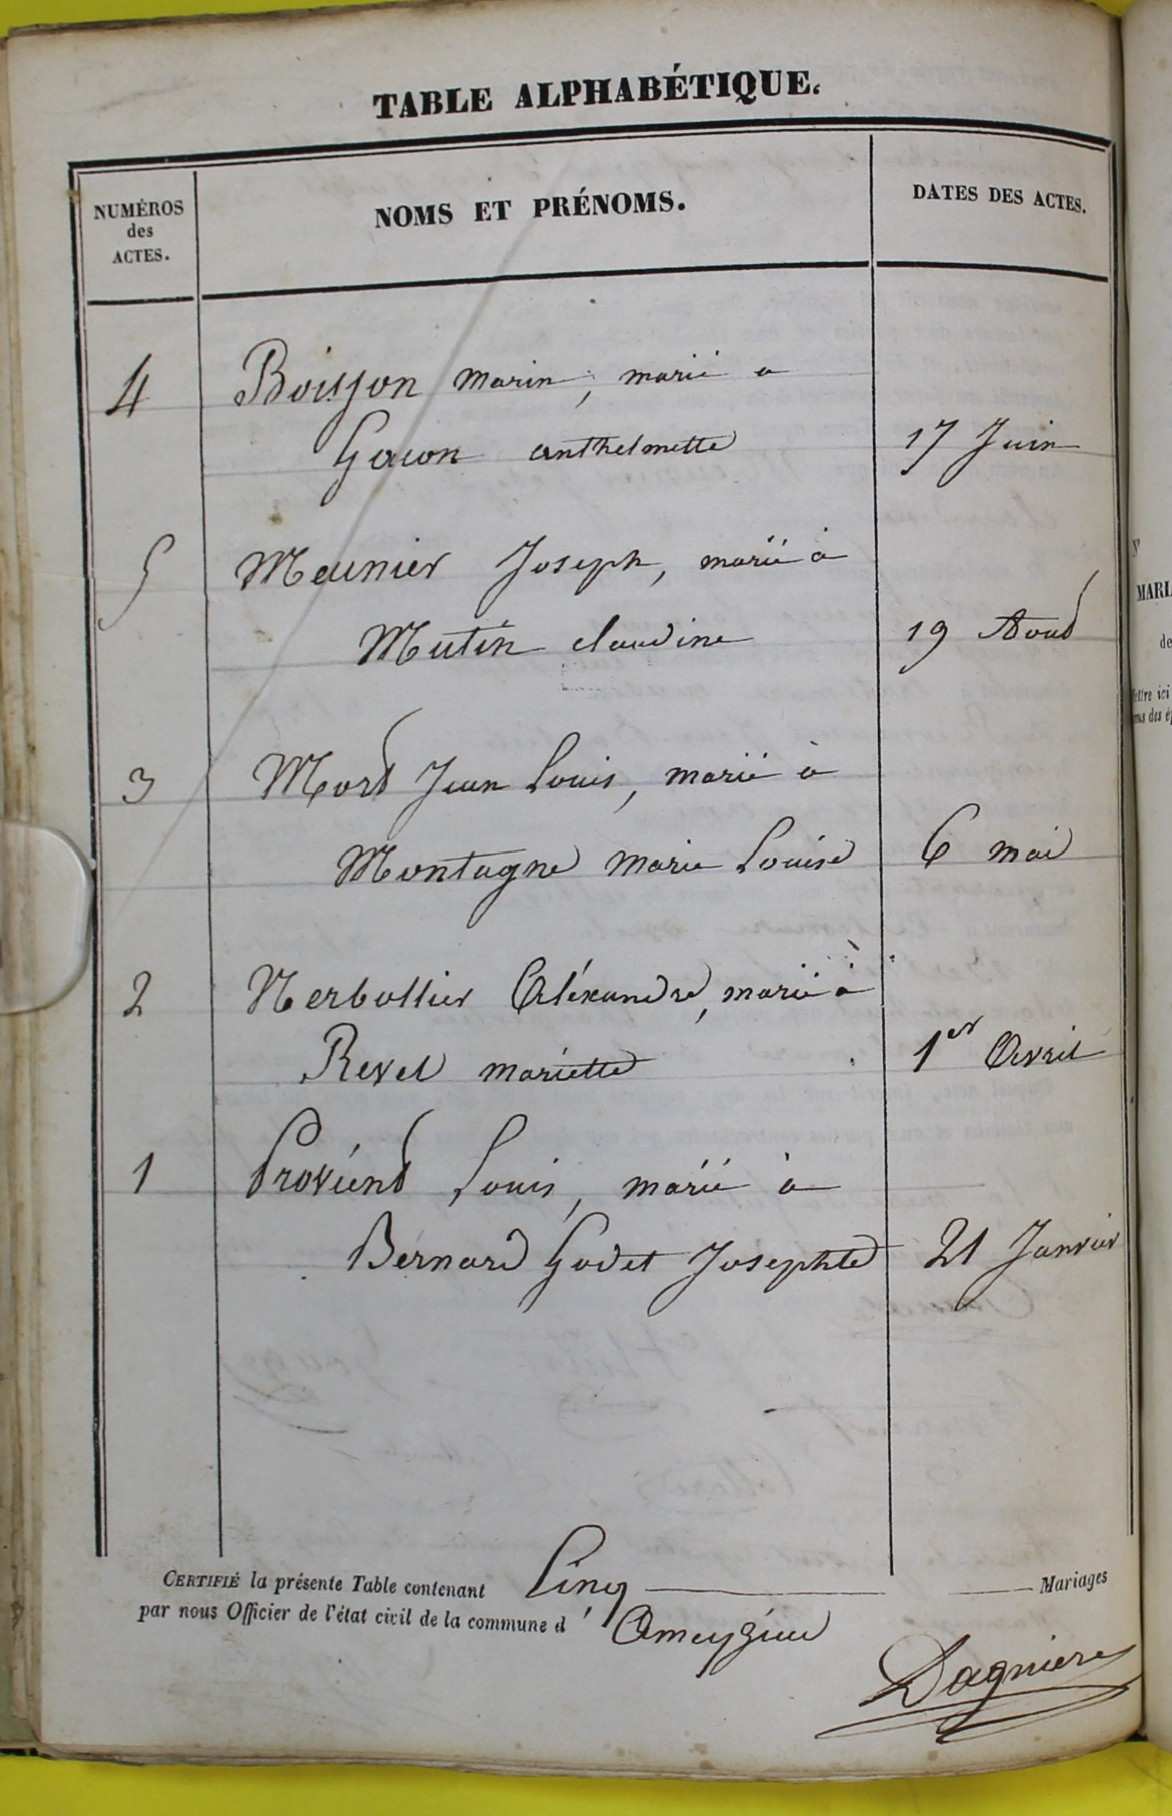 TABLE ALPHABÉTIQUE.
NUMÉROS
des
ACTES.
NOMS ET PRÉNOMS.
DATES DES ACTES.
4 Boisson marin, marié a
Gacon anthelmette 17 Juin
5 Meunier Joseph, marié à
Mutin claudine 19 Aout
3 Mort Jean Louis, marié à
Montagne marie Louise 6 mai
2 Nerbollier Aléxandre, marié à
Revel mariette 1er Avril
1 Proviend Louis, marié à
Bernard Godet Josephte 21 Janvier
CERTIFIÉ la présente Table contenant Cinq Mariages
par nous Officier de l'état civil de la commune d'Ameyzieu
Dagniere
MARI
de
ettre ici